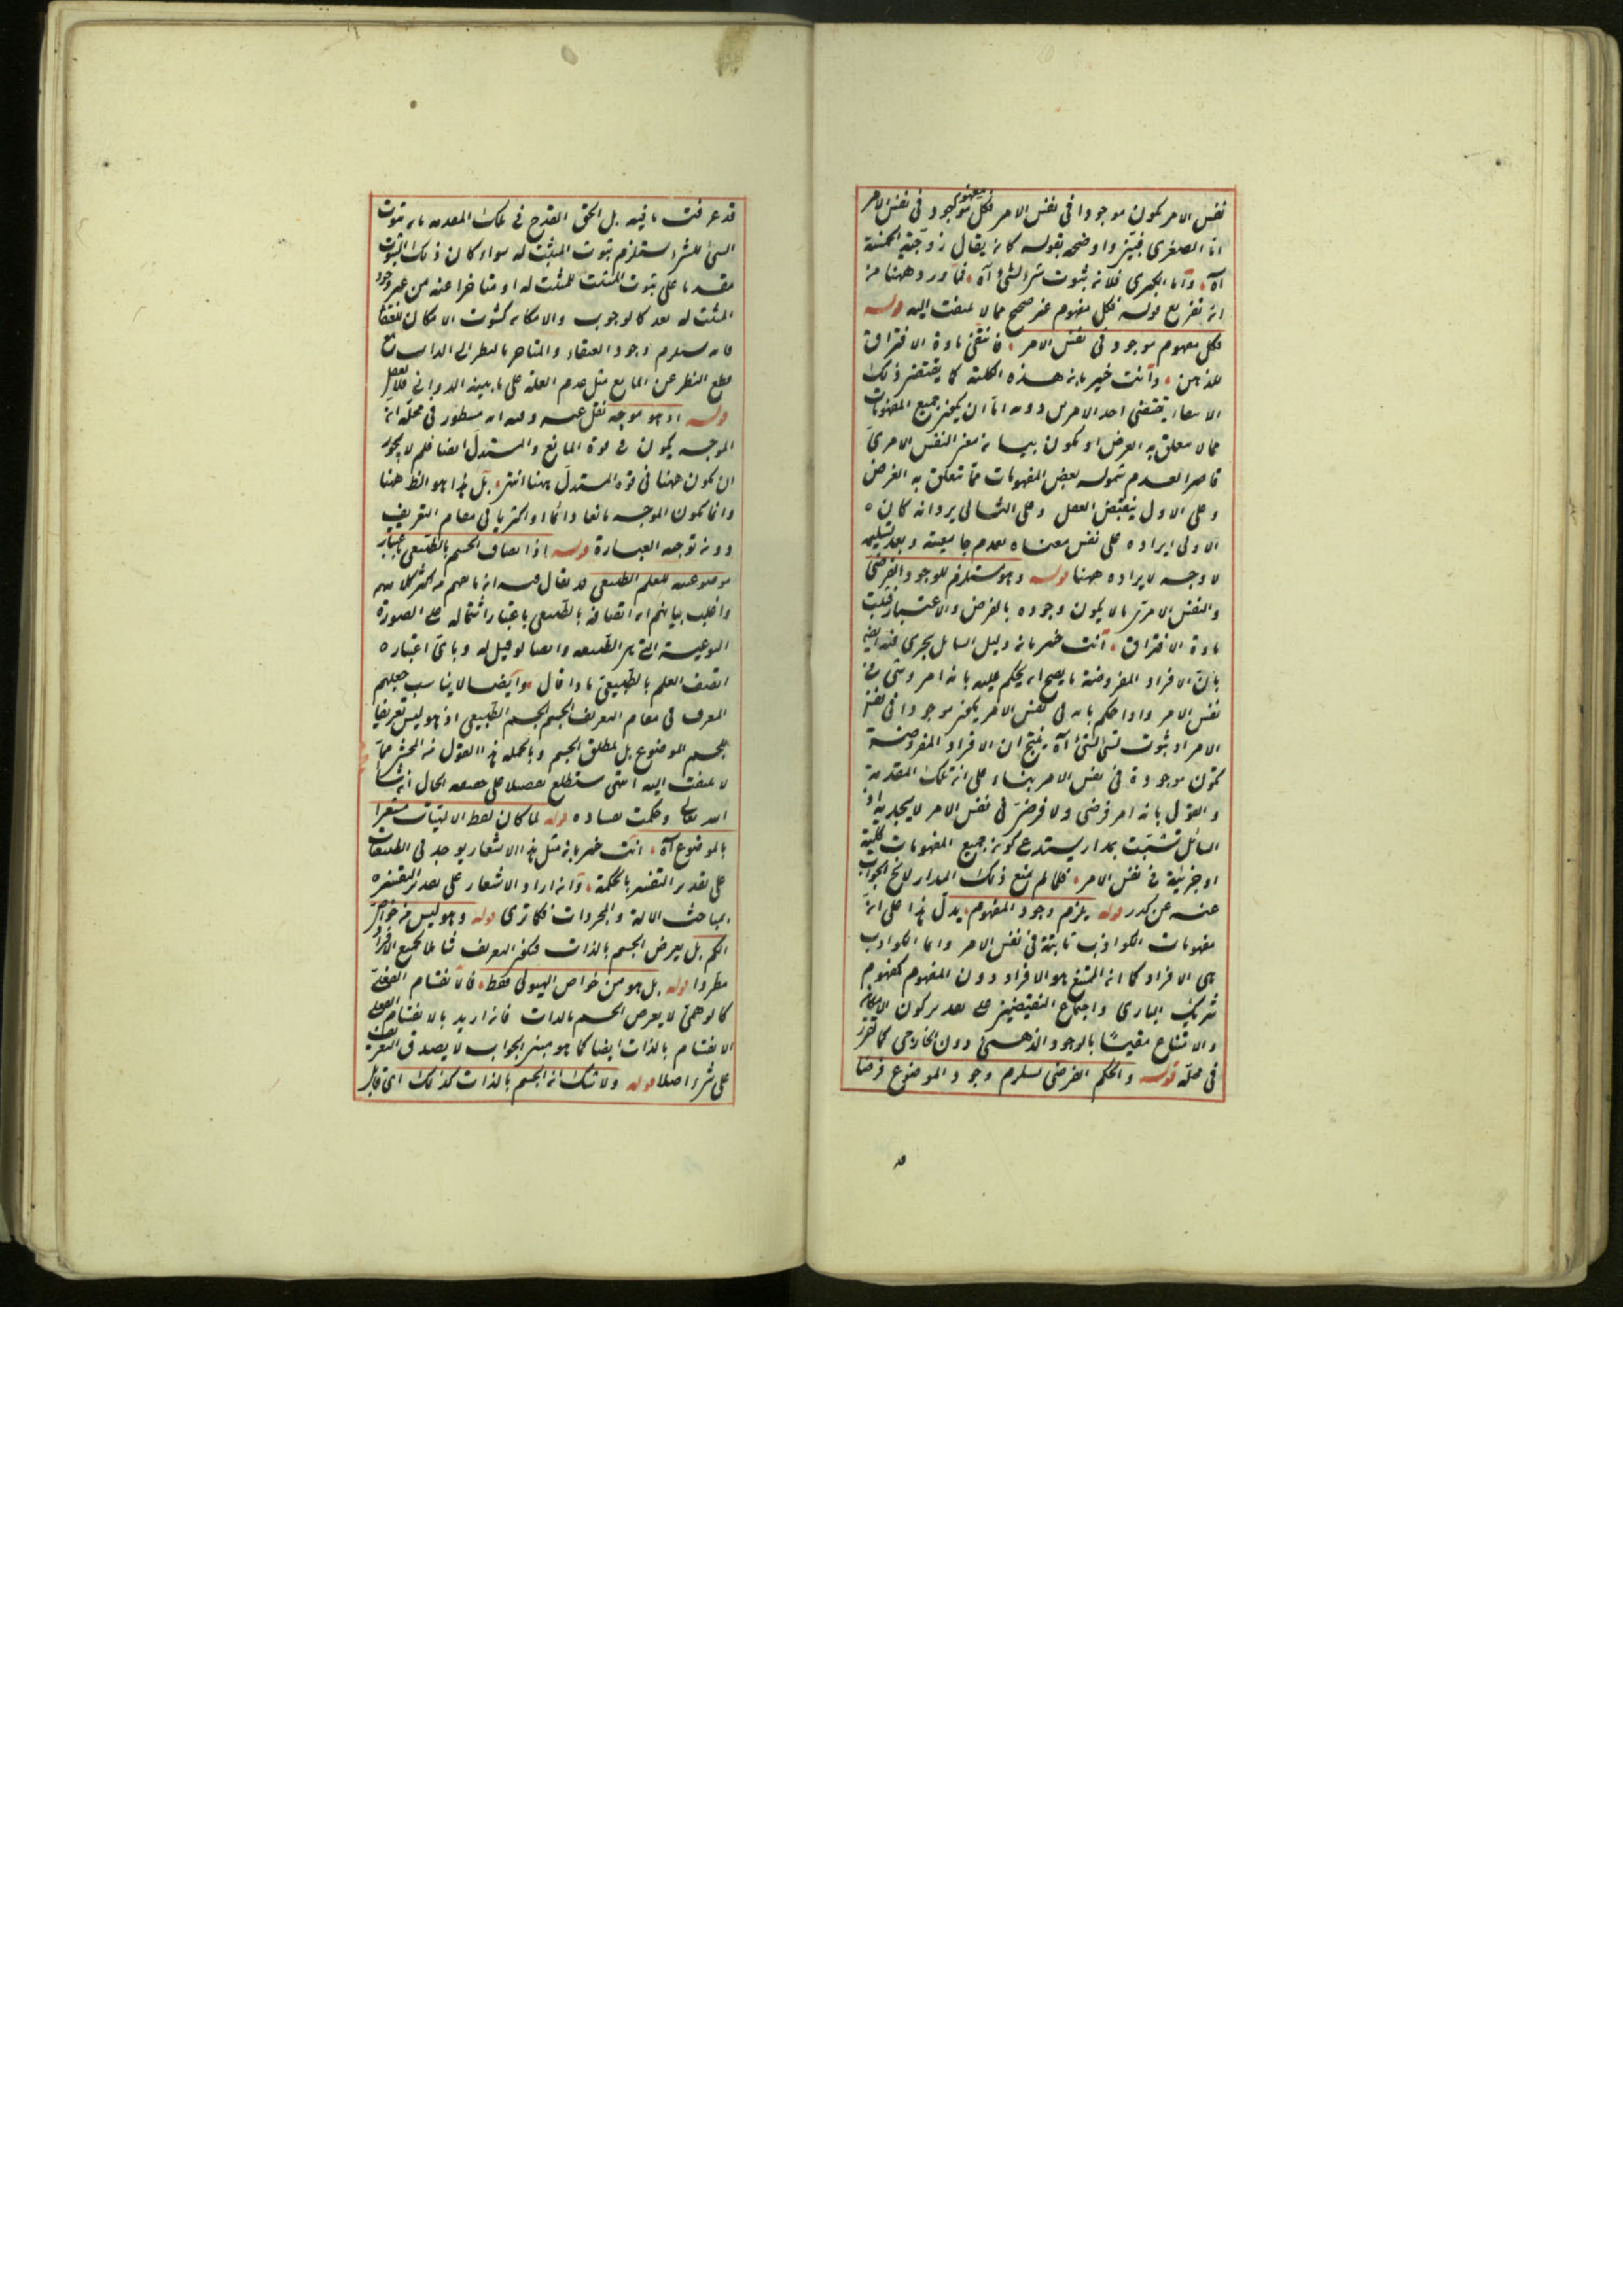 نفس الامر يكون موجودا في نفس الامر فكل مفهوم موجود في نفس الامر
اما الصغرى فبين واوضحه بقوله كانه يقال زوجية الخمسة
آه وأما الكبرى فلانه ثبوت شئ لشئ آه فما ورد ههنا من
انه تفريع قوله فكل مفهوم غير صحيح مما لا يلتفت اليه قوله
فكل مفهوم موجود في نفس الامر فانتفى مادة الافتراق
للذهن وأنت خبير بانه هذه الكلية كما يقتضى ذلك
يقتضى احد الامرين دونه اما ان يكون جميع المفهومات
مما لا يتعلق به الغرض او يكون بيانه معنى النفس الامرى
قاصرا لعدم شموله بعض المفهومات مما تعلق به الغرض
وعلى الاول ينقبض العقل وعلى الثانى يرد انه كان
الاولى ايراده على نفس معناه بعدم جامعيته وبعد تسليمه
لا وجه لايراده ههنا قوله وهو مستلزم للوجود الفرضى
والنفس الامرى ما لا يكون وجوده بالفرض والاعتبار فيثبت
مادة الافتراق أنت خبير بانه دليل السائل يجرى فيه ايضا
بان الافراد المفروضة ما يصح ان يحكم عليه بانه امر وشئ في
نفس الامر واذا حكم بانه في نفس الامر يكون موجودا في نفس
الامر اذ ثبوت شئ لشئ آه ينتج ان الافراد المفروضة
تكون موجودة في نفس الامر بناء على انه تلك المقدمة
والقول بانه امر فرضى ولا فرضى في نفس الامر لا يجديه اذ
السائل تشبث بمدار يستدعى كونه جميع المفهومات كلية
او جزئية في نفس الامر فلما لم يمنع ذلك المدار لا نخ الجواب
عنه عن كدر قوله يلزم وجود المفهوم يدل هذا على انه
مفهومات الكواذب ثابتة في نفس الامر وانما الكواذب
هى الافراد كما انه الممتنع هو الافراد دون المفهوم كمفهوم
شريك البارى واجتماع النقيضين على تقدير كون الامكان
والامتناع مقيسا بالوجود الذهنى دون الخارجى كما تقرر
في محله قوله والحكم الفرضى يستلزم وجود الموضوع فرضا
قد عرفت ما فيه بل الحق القدح في تلك المقدمه بانه ثبوت
الشئ للشئ يستلزم ثبوت المثبت له سواء كان ذلك الثبوت
مقدما على ثبوت المثبت للمثبت له او متاخرا عنه من غير وجود
المثبت له بعد كالوجوب والامكان كثبوت الامكان للعنقا
فانه يستلزم وجود العنقاء والمتاخر بالنظر الى الذات مع
قطع النظر عن المانع مثل عدم العلة على ما بينه الدوانى
قوله اذ هو موجه نقل عنه وفيه انه مسطور في محله انه
الموجه يكون في قوة المانع والمستدل ايضا فلم لا يجوز
ان يكون ههنا في قوة المستدل ههنا انتهى بل هذا هو الظ ههنا
وانما يكون الموجه مانعا دائما او اكثريا في مقام التعريف
دونه توجه العبارة قوله اذ اتصاف الجسم بالطبيعى باعتبار
موضوعيته للعلم الطبيعى قد يقال فيه انه ما يفهم من اكثر كلامهم
واغلب بياناتهم انه اتصافه بالطبيعى باعتبار اشتماله على الصورة
النوعية التى هى الطبيعه وايضا لو قيل له وباى اعتباره
اتصف العلم بالطبيعى ماذا قال وأيضا لا يناسب جعلهم
المعرف في مقام التعريف الجسم الجسم الطبيعى اذ هو ليس تعريفا
للجسم الموضوع بل لمطلق الجسم وبالجمله هذا القول من المحشى مما
لا يلتفت اليه انتهى ستطلع تفصيلا على حقيقة الحال انشا
الله تعالى وحكمت بفساده قوله لما كان لفظ الالهيات مشعرا
بالموضوع آه أنت خبير بانه مثل هذا الاشعار يوجد في الطبيعيات
على تقدير التفسير بالحكمة وانه اراد الاشعار على تقدير التفسير
بمباحث الاله والمجردات فكما ترى قوله وهو ليس من خواص
الكم بل يعرض الجسم بالذات فيكون التعريف شاملا لجميع الافراد
مطردا قوله بل هو من خواص الهيولى فقط فالانقسام الفعلى
كالوهمى لا يعرض الجسم بالذات فانه اريد بالانقسام الفعلى
الانقسام بالذات ايضا كما هو مبنى الجواب لا يصدق التعريف
على شئ اصلا قوله ولا شك انه الجسم بالذات كذلك اى قابل